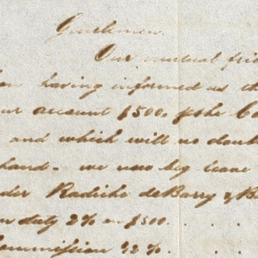 Gentlemen.
Our mutual frie
having informed us th
our account $500. 
and which will no doub
hand - we now beg leave
Radicho deBarry & B
duty 2% on $500. . .
Commission 92%. . .